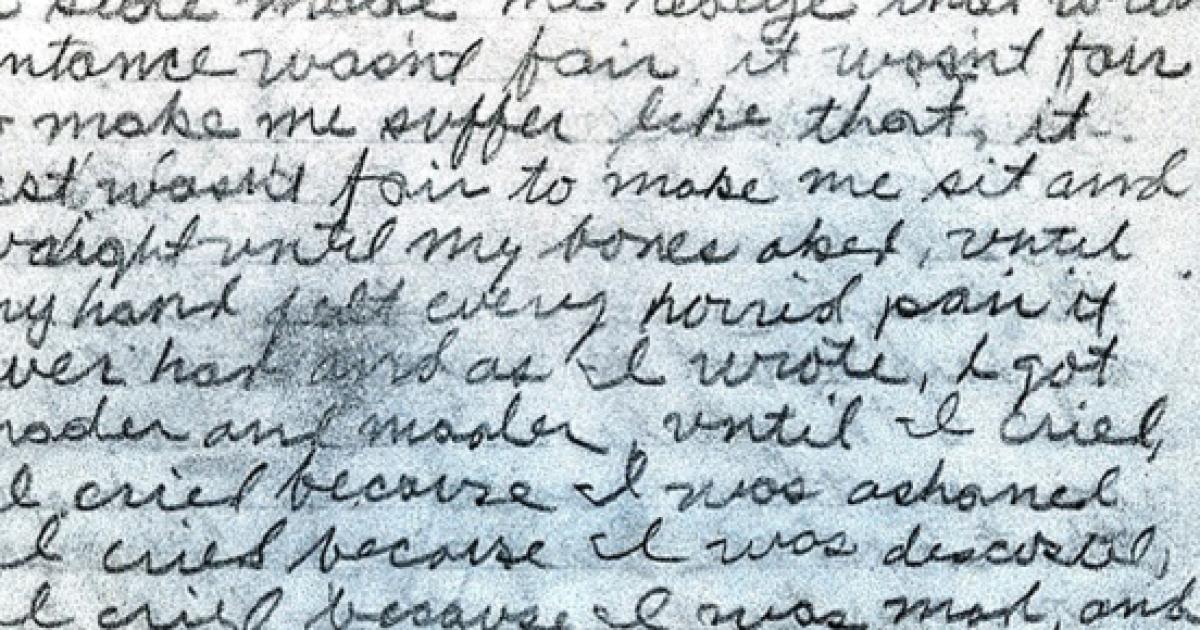 made me realize that
ntance wasn't fair, it wasn't fair
make me suffer like that, it
est wasn't fair to make me sit and
raight until my bones aked, until
my hand felt every horrid pain it
ver had and as I wrote, I got
mader and mader, until I cried,
I cried because I was ashamed
I cried because I was discusted,
I cried because I was mad, and